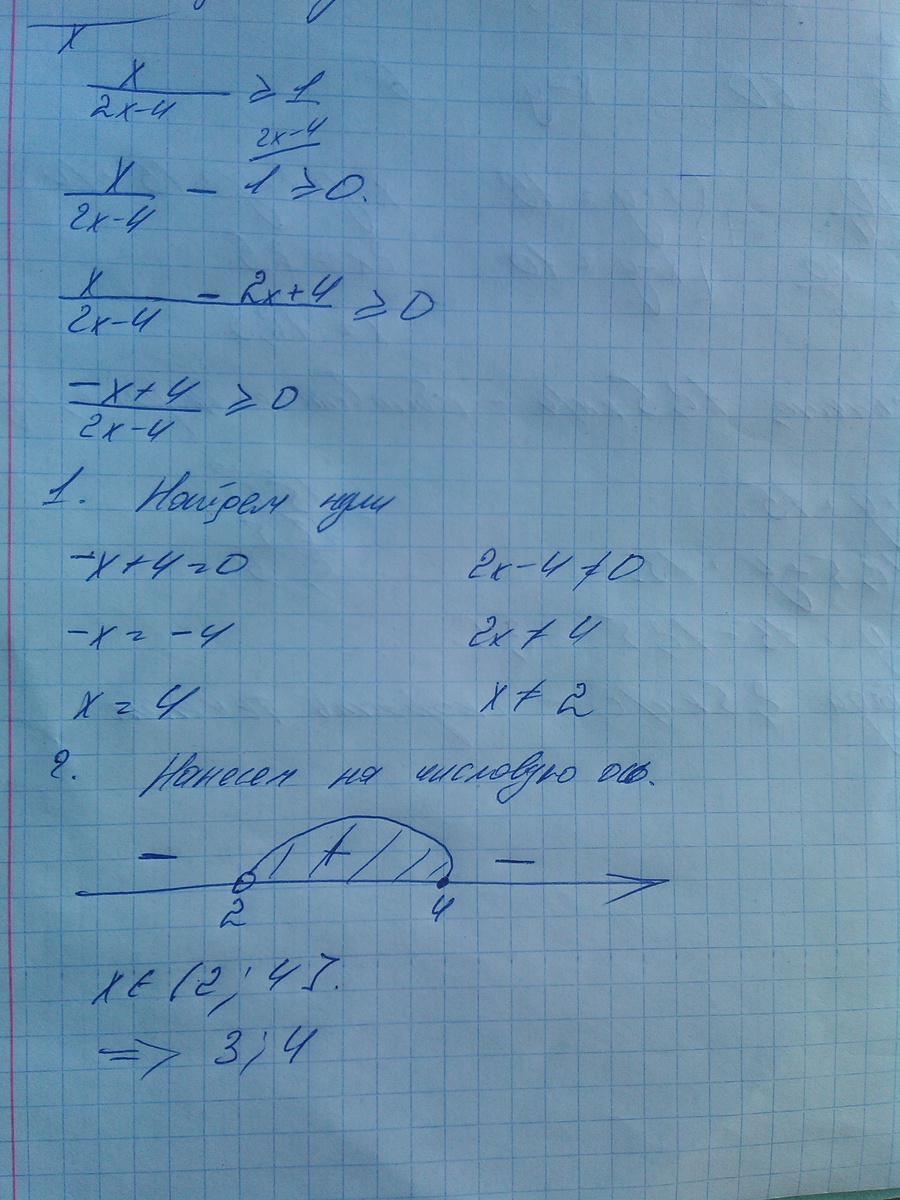 x
x
2x-4 ≥ 1
2x-4
x
2x-4 - 1 ≥ 0.
x - 2x+4
2x-4 ≥ 0
-x+4
2x-4 ≥ 0
1. Найдем нули
-x+4=0 2x-4≠0
-x = -4 2x ≠ 4
x = 4 x ≠ 2
2. Нанесем на числовую ось.
- + -
2 4
x ∈ (2; 4].
=> 3; 4